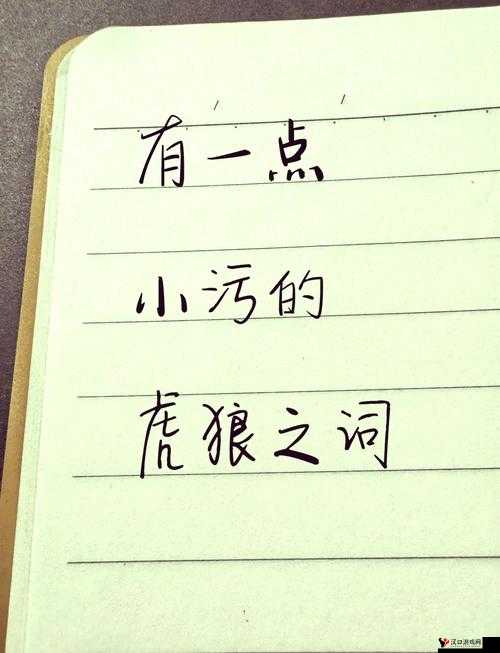 有一点
小污的
虎狼之词
汉口游戏网